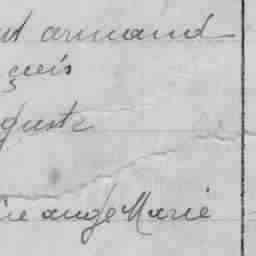 armand
çois
guste
ange Marie